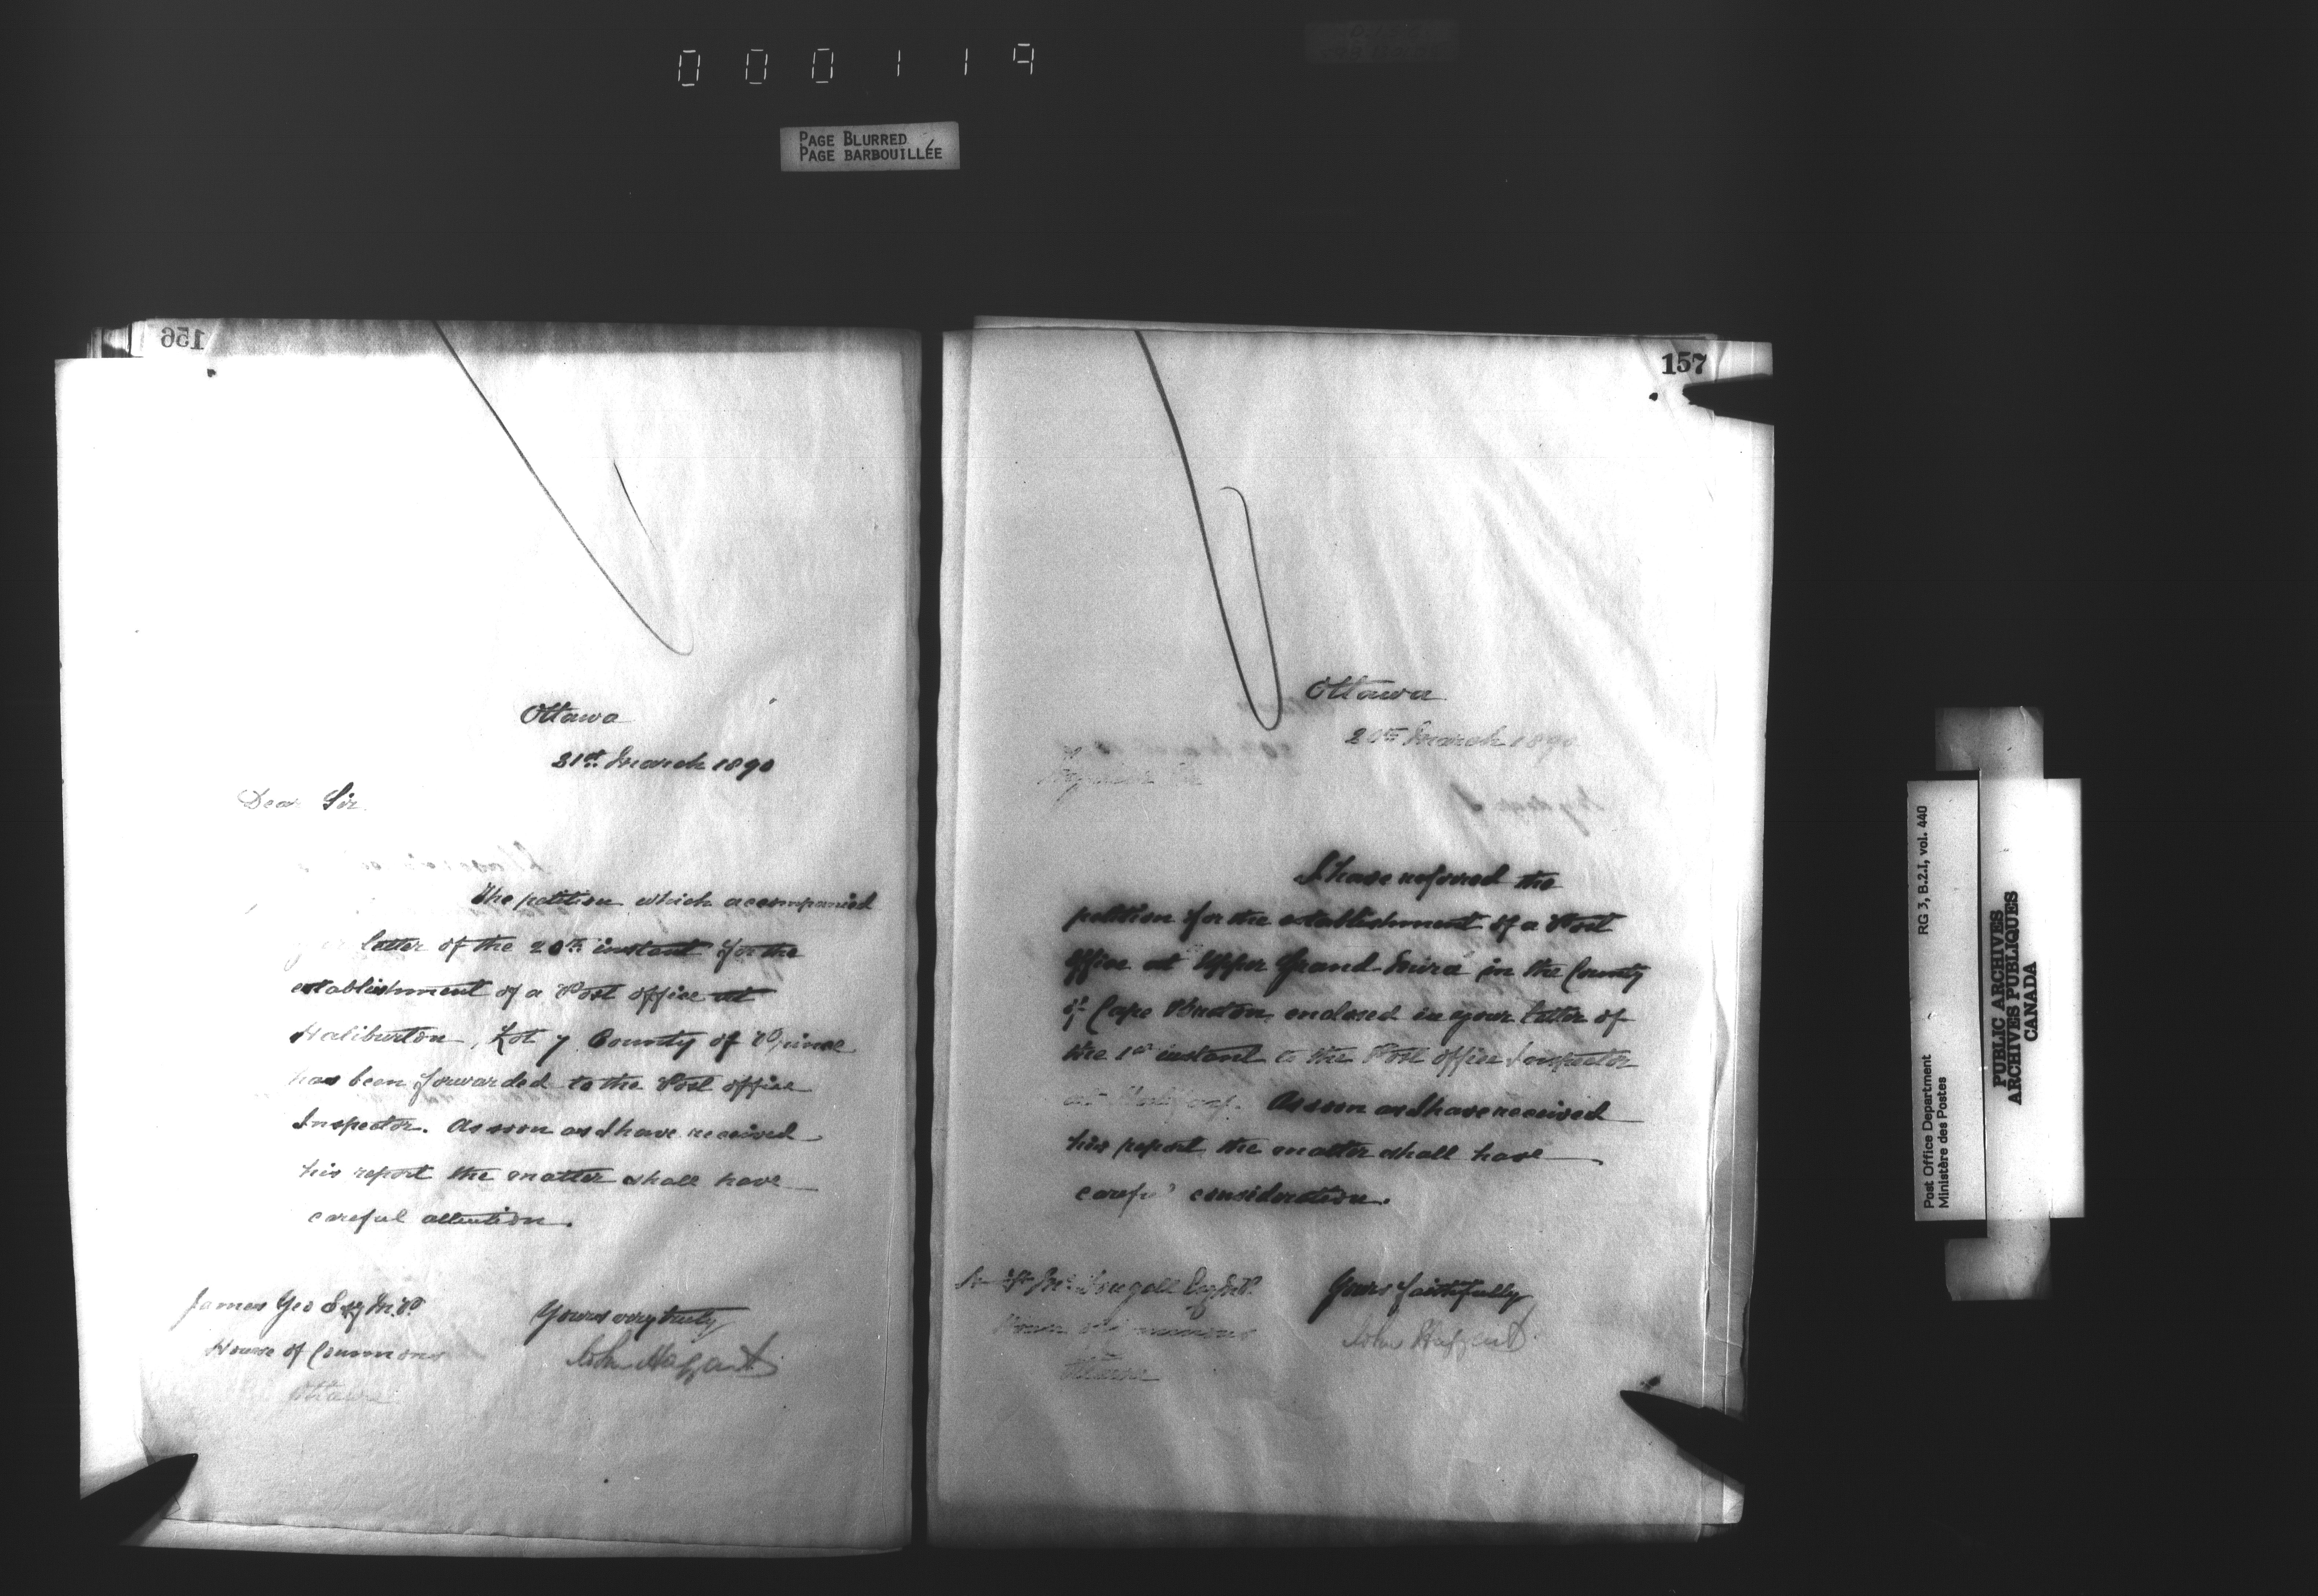 000119
PAGE BLURRED
PAGE BARBOUILLÉE
156
Ottawa
21st March 1890
Dear Sir
The petition which accompanied
your letter of the 20th instant for the
establishment of a Post office at
Haliburton, Lot 7 County of Prince
has been forwarded to the Post office
Inspector. As soon as I have received
his report the matter shall have
careful attention.
Yours very truly
John Haggart
James Yeo Esq M.P.
House of Commons
Ottawa
157
Ottawa
20th March 1890
I have referred the
petition for the establishment of a Post
Office at Upper Grand Mira in the County
of Cape Breton enclosed in your letter of
the 1st instant to the Post office Inspector
at As soon as I have received
his report the matter shall have
careful consideration.
Yours faithfully
John Haggart
McDougall Esq M.P.
House of Commons
Ottawa
Post Office Department RG 3, B.2.I, vol. 440
Ministère des Postes
PUBLIC ARCHIVES
ARCHIVES PUBLIQUES
CANADA